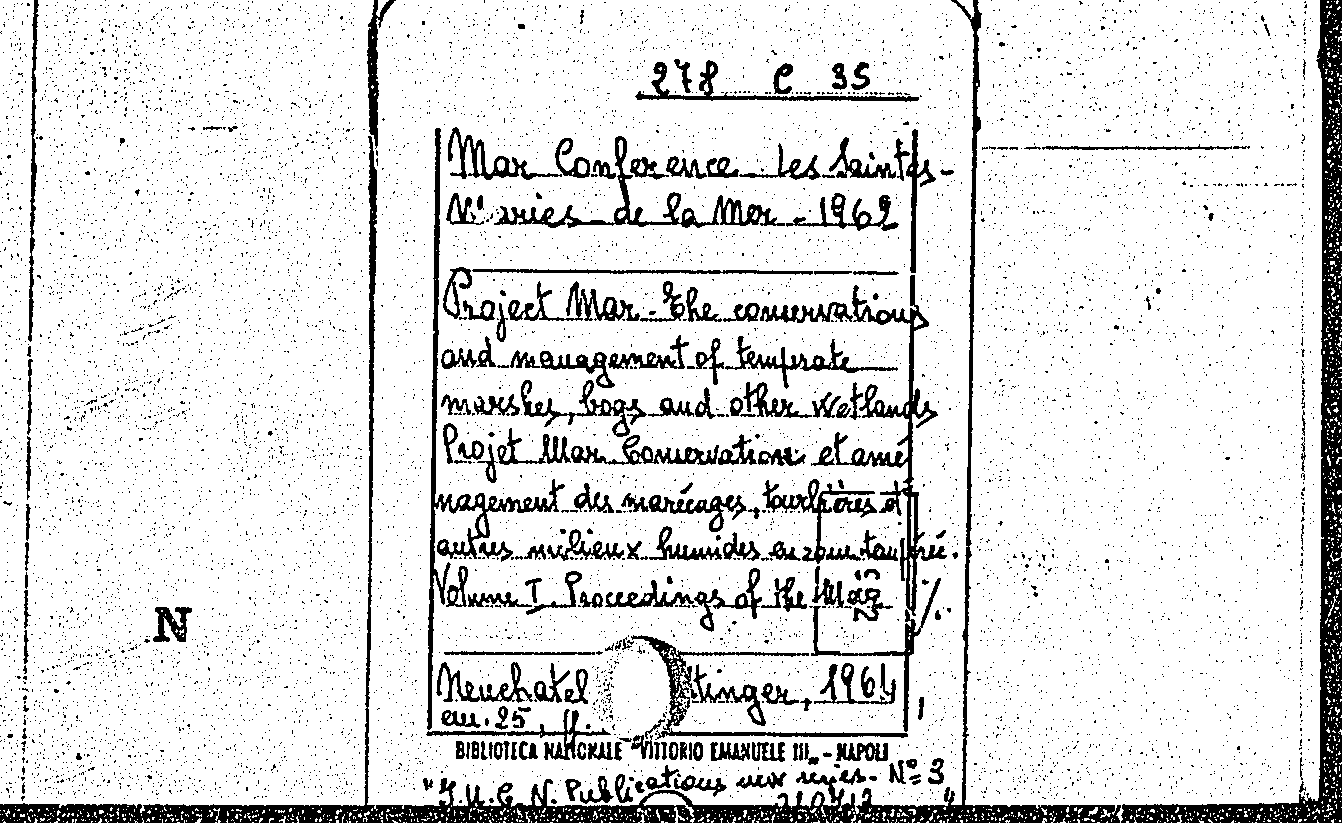 278 C 35
Mar Conference. Les Saintes-
Maries de la Mer - 1962
Project Mar. The conservations
and management of temperate
marshes, bogs and other Wetlands
Projet Mar. Conservation et amé
nagement des marécages, tourbières et
autres milieux humides en zone tempérée.
Volume I. Proceedings of the Mar
N
Neuchatel tinger, 1964,
cm. 25, ff.
BIBLIOTECA NAZIONALE "VITTORIO EMANUELE III" - NAPOLI
"I.U.C.N. Publications new series. Nº 3
"